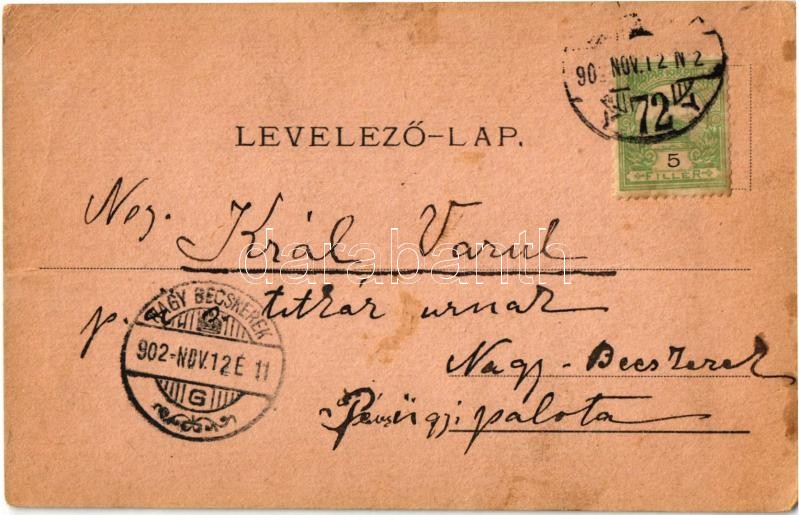 902 NOV. 12 N 2
72
5
FILLER
LEVELEZŐ-LAP.
Král
titkár urnak
NAGY BECSKEREK
902-NOV.12 E 11
G
Nagy-Becskerek
Pénzügyi palota
darabanth